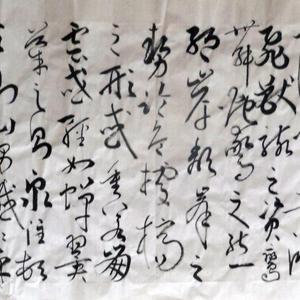 飛獸駭之資鸞
舞蛇驚之態
絕岸頹峯之
勢臨危據槁
之形或重若崩
雲或輕如蟬翼
導之則泉注頓
之則山安纖〻乎